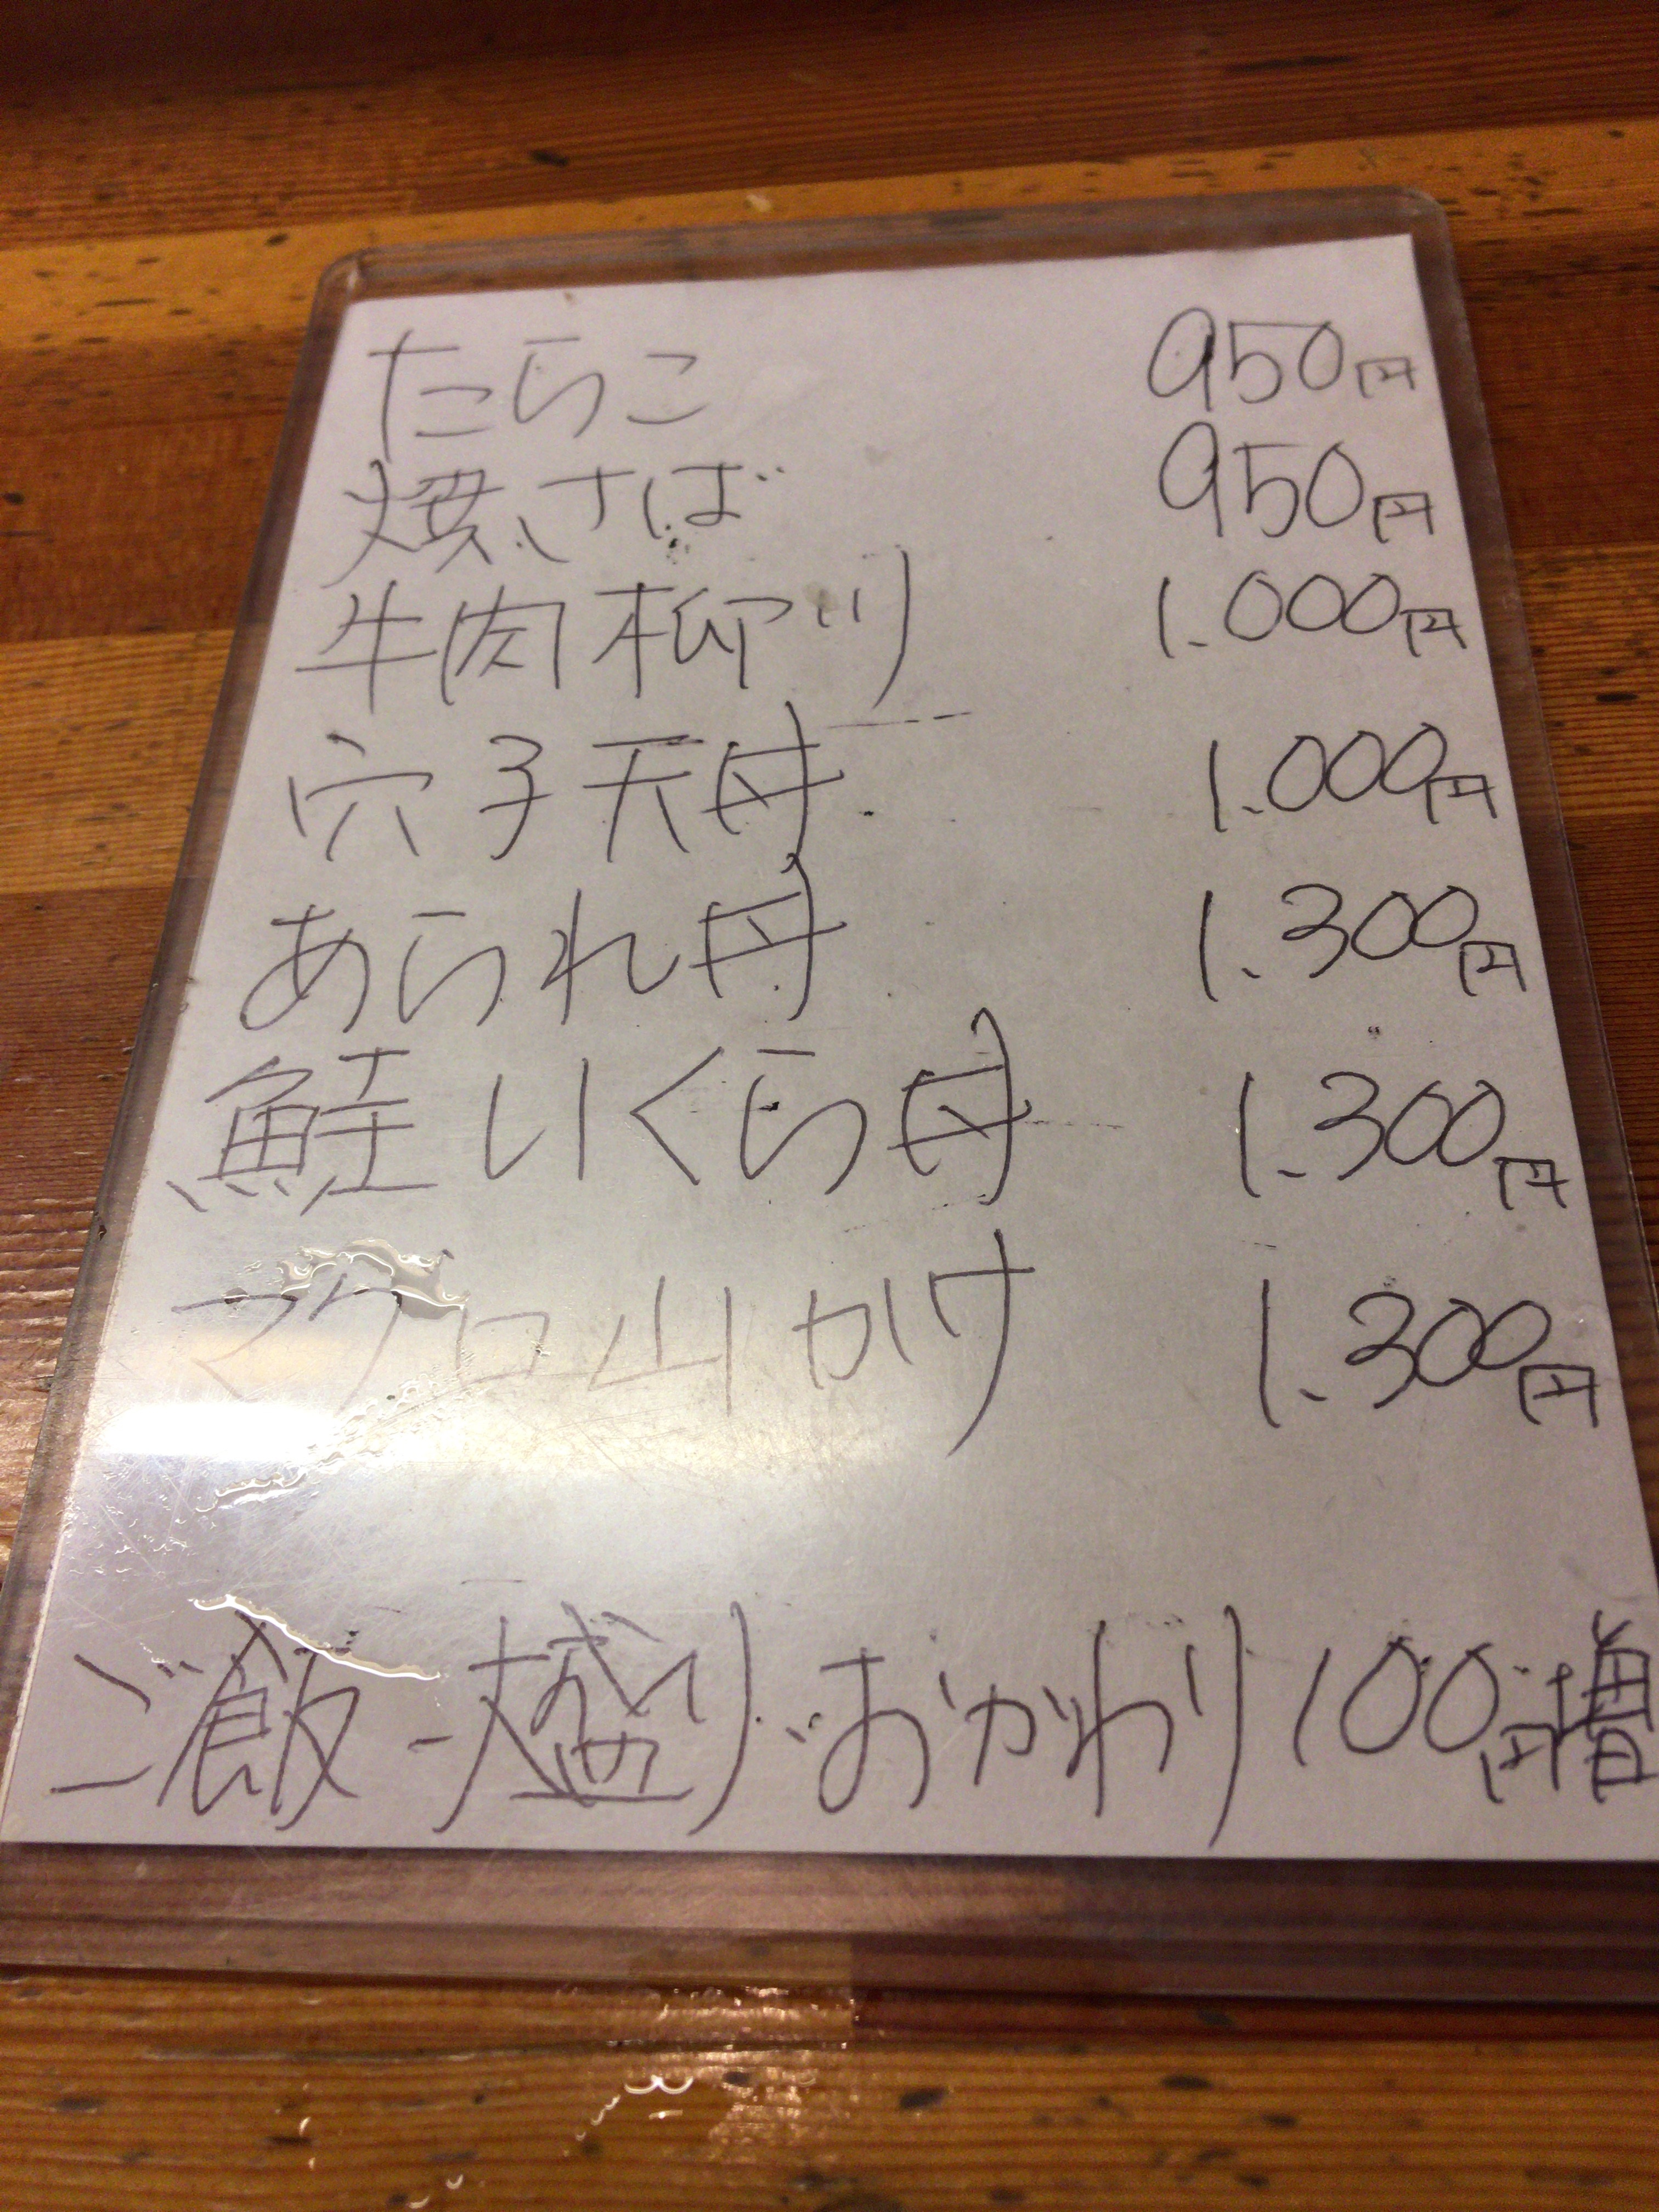 たらこ 950円
焼さば 950円
牛肉柳川 1.000円
穴子天丼 1.000円
あられ丼 1.300円
鮭いくら丼 1.300円
マグロ山かけ 1.300円
ご飯大盛り・おかわり100円増